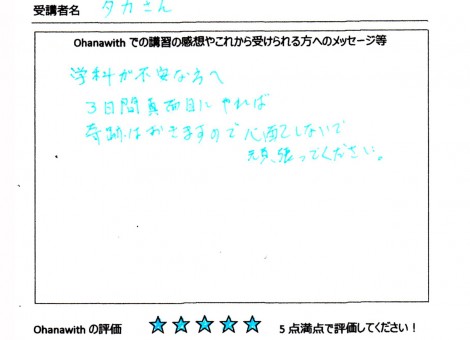 受講者名 タカさん
Ohanawith での講習の感想やこれから受けられる方へのメッセージ等
学科が不安な方へ
3日間真面目にやれば
奇跡はおきますので心配しないで
頑張ってください。
Ohanawith の評価 ★★★★★ 5点満点で評価してください！